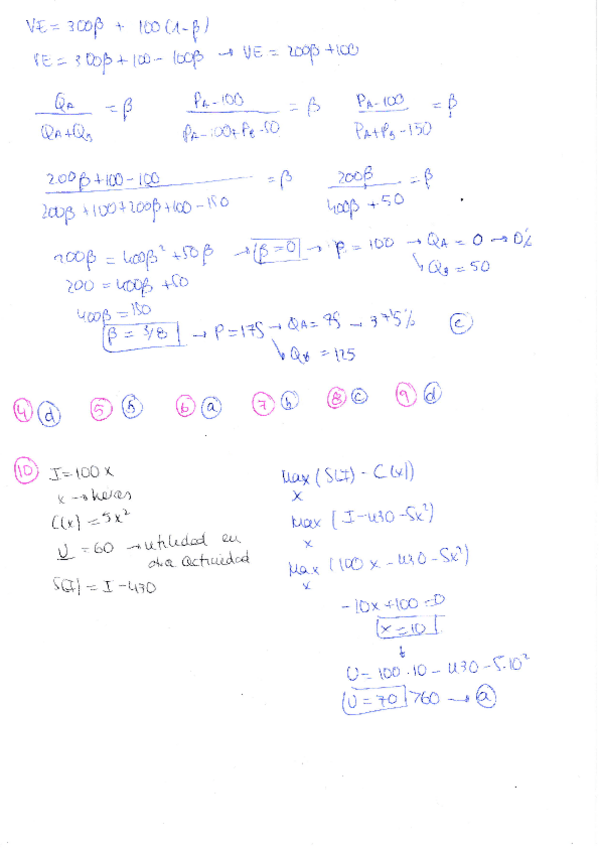 VE = 300β + 100(1-β)
VE = 300β + 100 - 100β → VE = 200β + 100
QA / (QA + QB) = β    (PA - 100) / (PA - 100 + PB - 50) = β    (PA - 100) / (PA + PB - 150) = β
(200β + 100 - 100) / (200β + 100 + 200β + 100 - 150) = β    200β / (400β + 50) = β
200β = 400β² + 50β → β = 0 → P = 100 → QA = 0 → 0%
↳ QB = 50
200 = 400β + 50
400β = 150
β = 3/8 → P = 175 → QA = 75 → 37'5% (c)
↳ QB = 125
4 d 5 b 6 a 7 b 8 c 9 d
10 I = 100x
x → horas
C(x) = 5x²
U = 60 → utilidad en otra actividad
S(I) = I - 430
Max (S(I) - C(x))
x
Max (I - 430 - 5x²)
x
Max (100x - 430 - 5x²)
x
-10x + 100 = 0
x = 10
↓
U = 100·10 - 430 - 5·10²
U = 70 > 60 → a